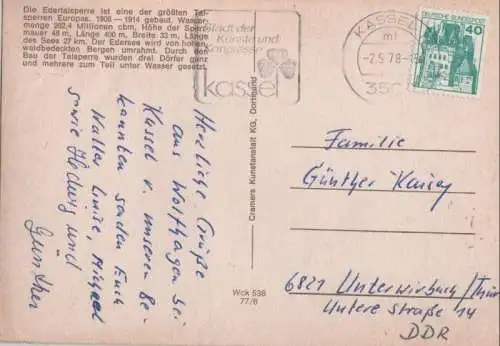 Die Edertalsperre ist eine der größten Tal-
sperren Europas. 1908 — 1914 gebaut. Wasser-
menge 202,4 Millionen cbm, Höhe der Sperr-
mauer 48 m, Länge 400 m, Breite 33 m, Länge
des Sees 27 km. Der Edersee wird von hohen,
waldbedeckten Bergen umrahmt. Durch den
Bau der Talsperre wurden drei Dörfer ganz
und mehrere zum Teil unter Wasser gesetzt.
Stadt der
Künste und
Kongresse
kassel
KASSEL
mt
-2.5.78-
350
DEUTSCHE BUNDESPOST
40
Herzliche Grüße
aus Wolfhagen bei
Kassel u. unseren Be-
kannten senden Euch
Walter, Luise, Michael
sowie Hedwig und
Günther
Cramers Kunstanstalt KG, Dortmund
Wck 538
77/8
Familie
Günther
6821 Unterwirbach/Thür
Untere Straße 14
DDR